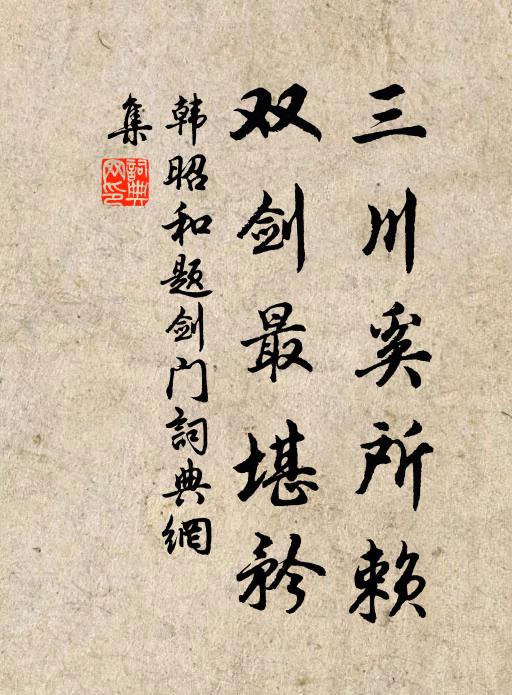 三川奚所赖
双剑最堪矜
韩昭和题剑门詞典網
集
詞典网印